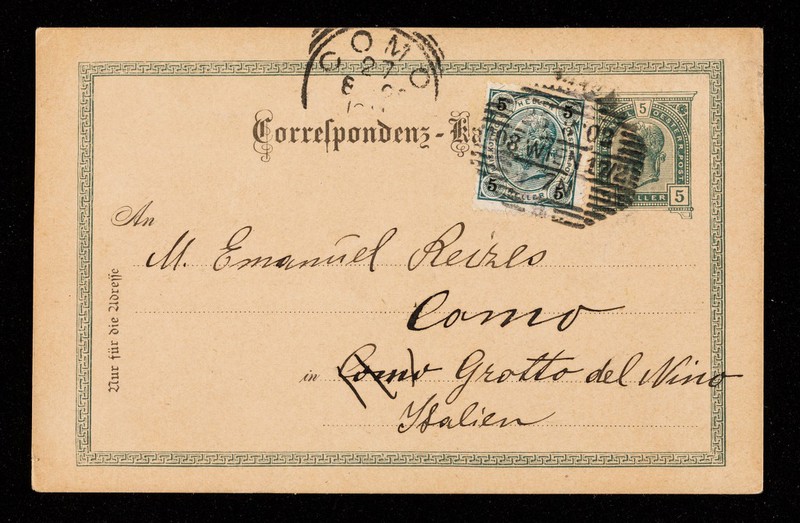 COMO
27
Correspondenz-Ka
5 5
HELLER
5 5
08 WIEN
02
5
OESTERR. POST
HELLER 5
An
M. Emanuel Reizes
Como
in Como Grotto del Nino
Italien
Nur für die Adresse